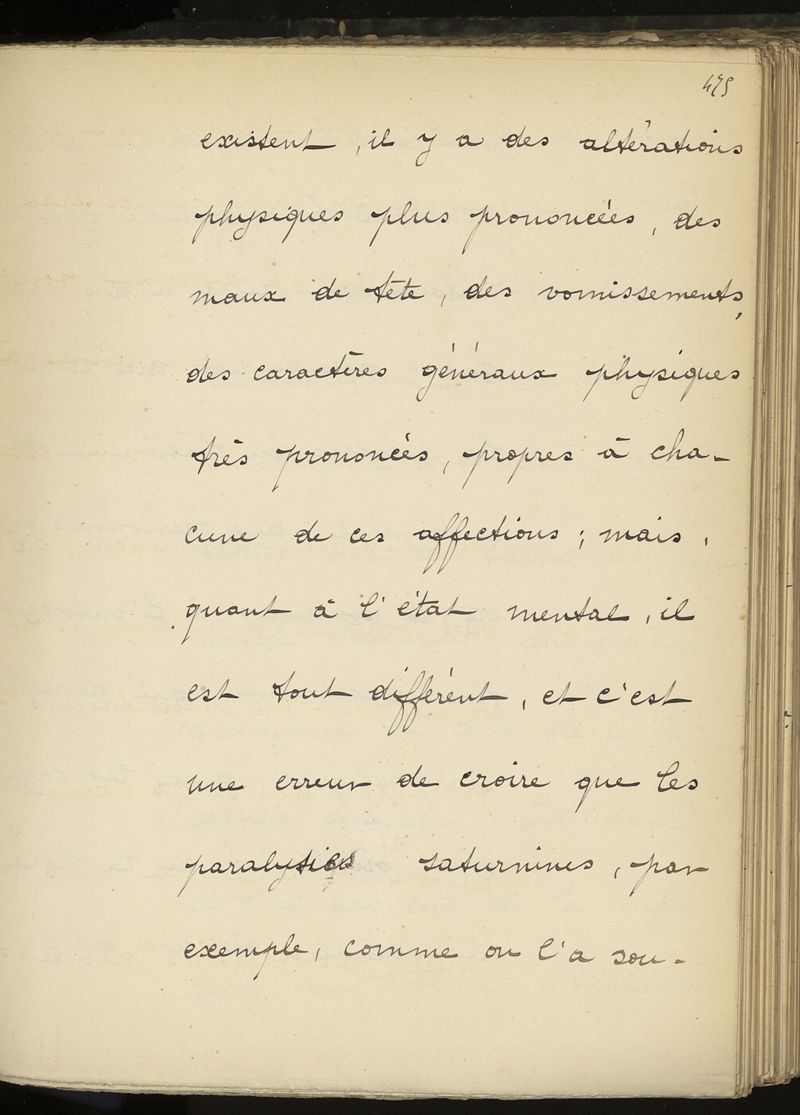 475
existent, il y a des altérations
physiques plus prononcées, des
maux de tête, des vomissements,
des caractères généraux physiques
très prononcés, propres à cha-
cune de ces affections; mais,
quant à l'état mental, il
est tout différent, et c'est
une erreur de croire que les
paralysies saturnines, par
exemple, comme on l'a sou-